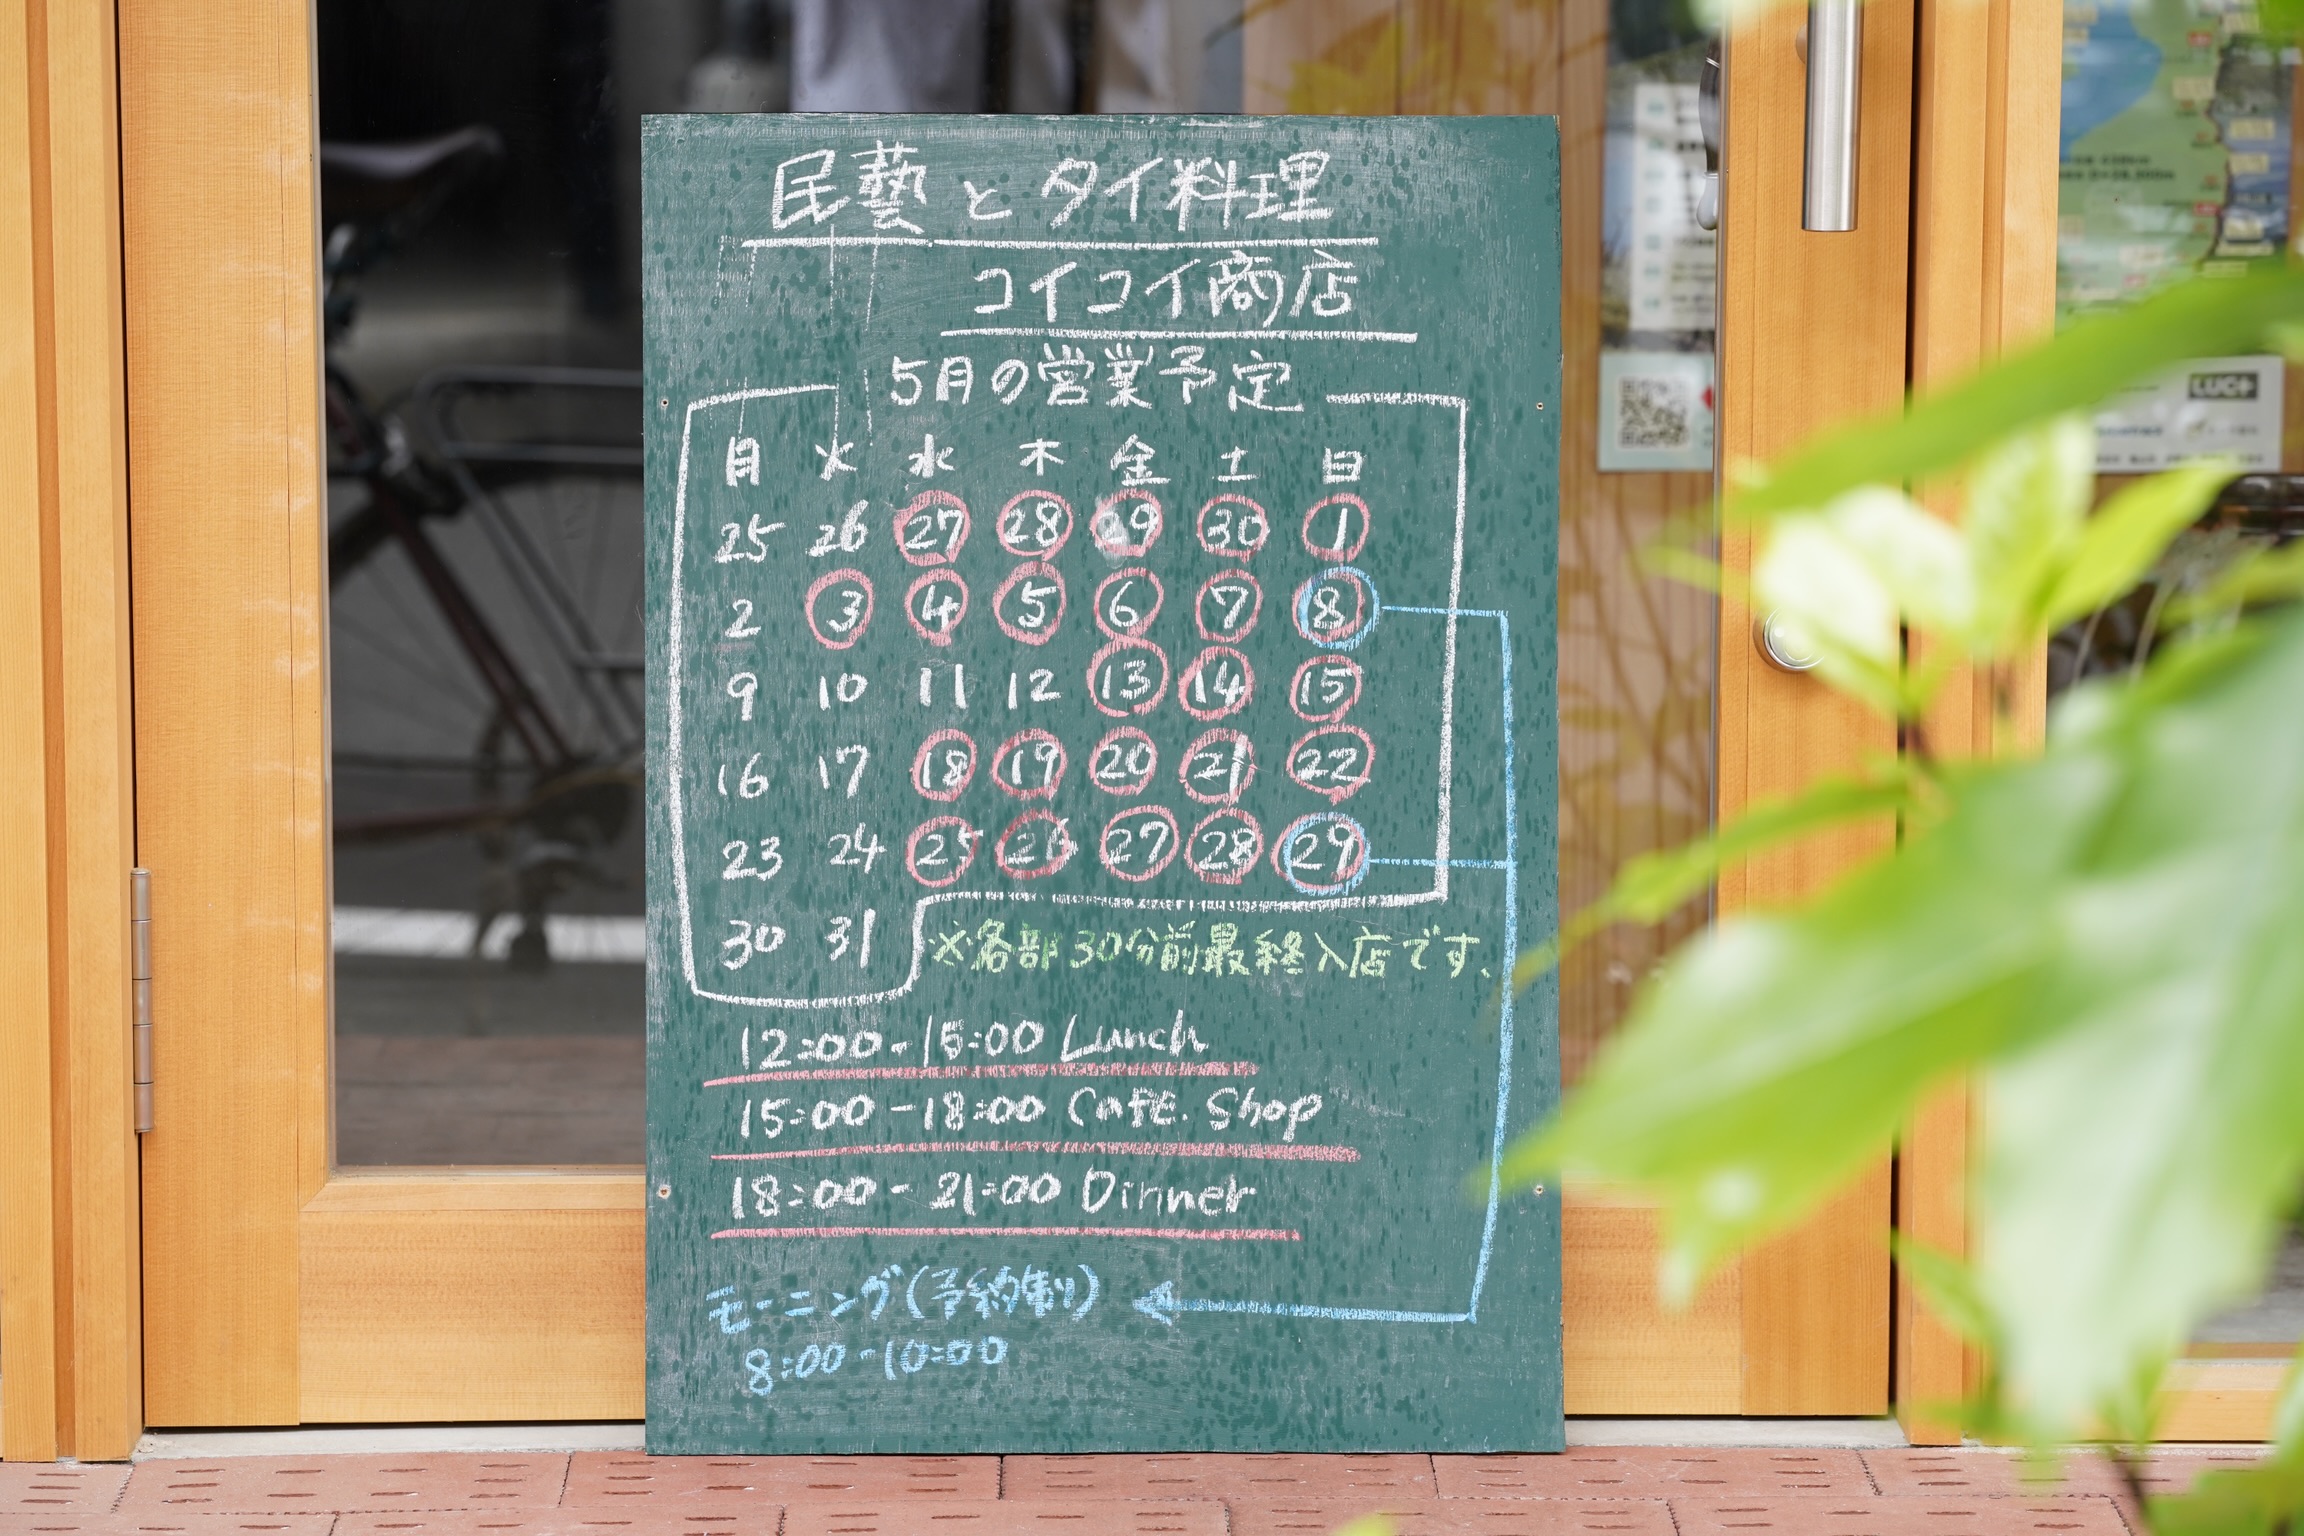 民藝とタイ料理
コイコイ商店
5月の営業予定
月 火 水 木 金 土 日
25 26 27 28 29 30 1
2 3 4 5 6 7 8
9 10 11 12 13 14 15
16 17 18 19 20 21 22
23 24 25 26 27 28 29
30 31
※各部30分前最終入店です、
12:00-15:00 Lunch
15:00-18:00 Cafe. Shop
18:00-21:00 Dinner
モーニング(予約制)
8:00-10:00
LUC+